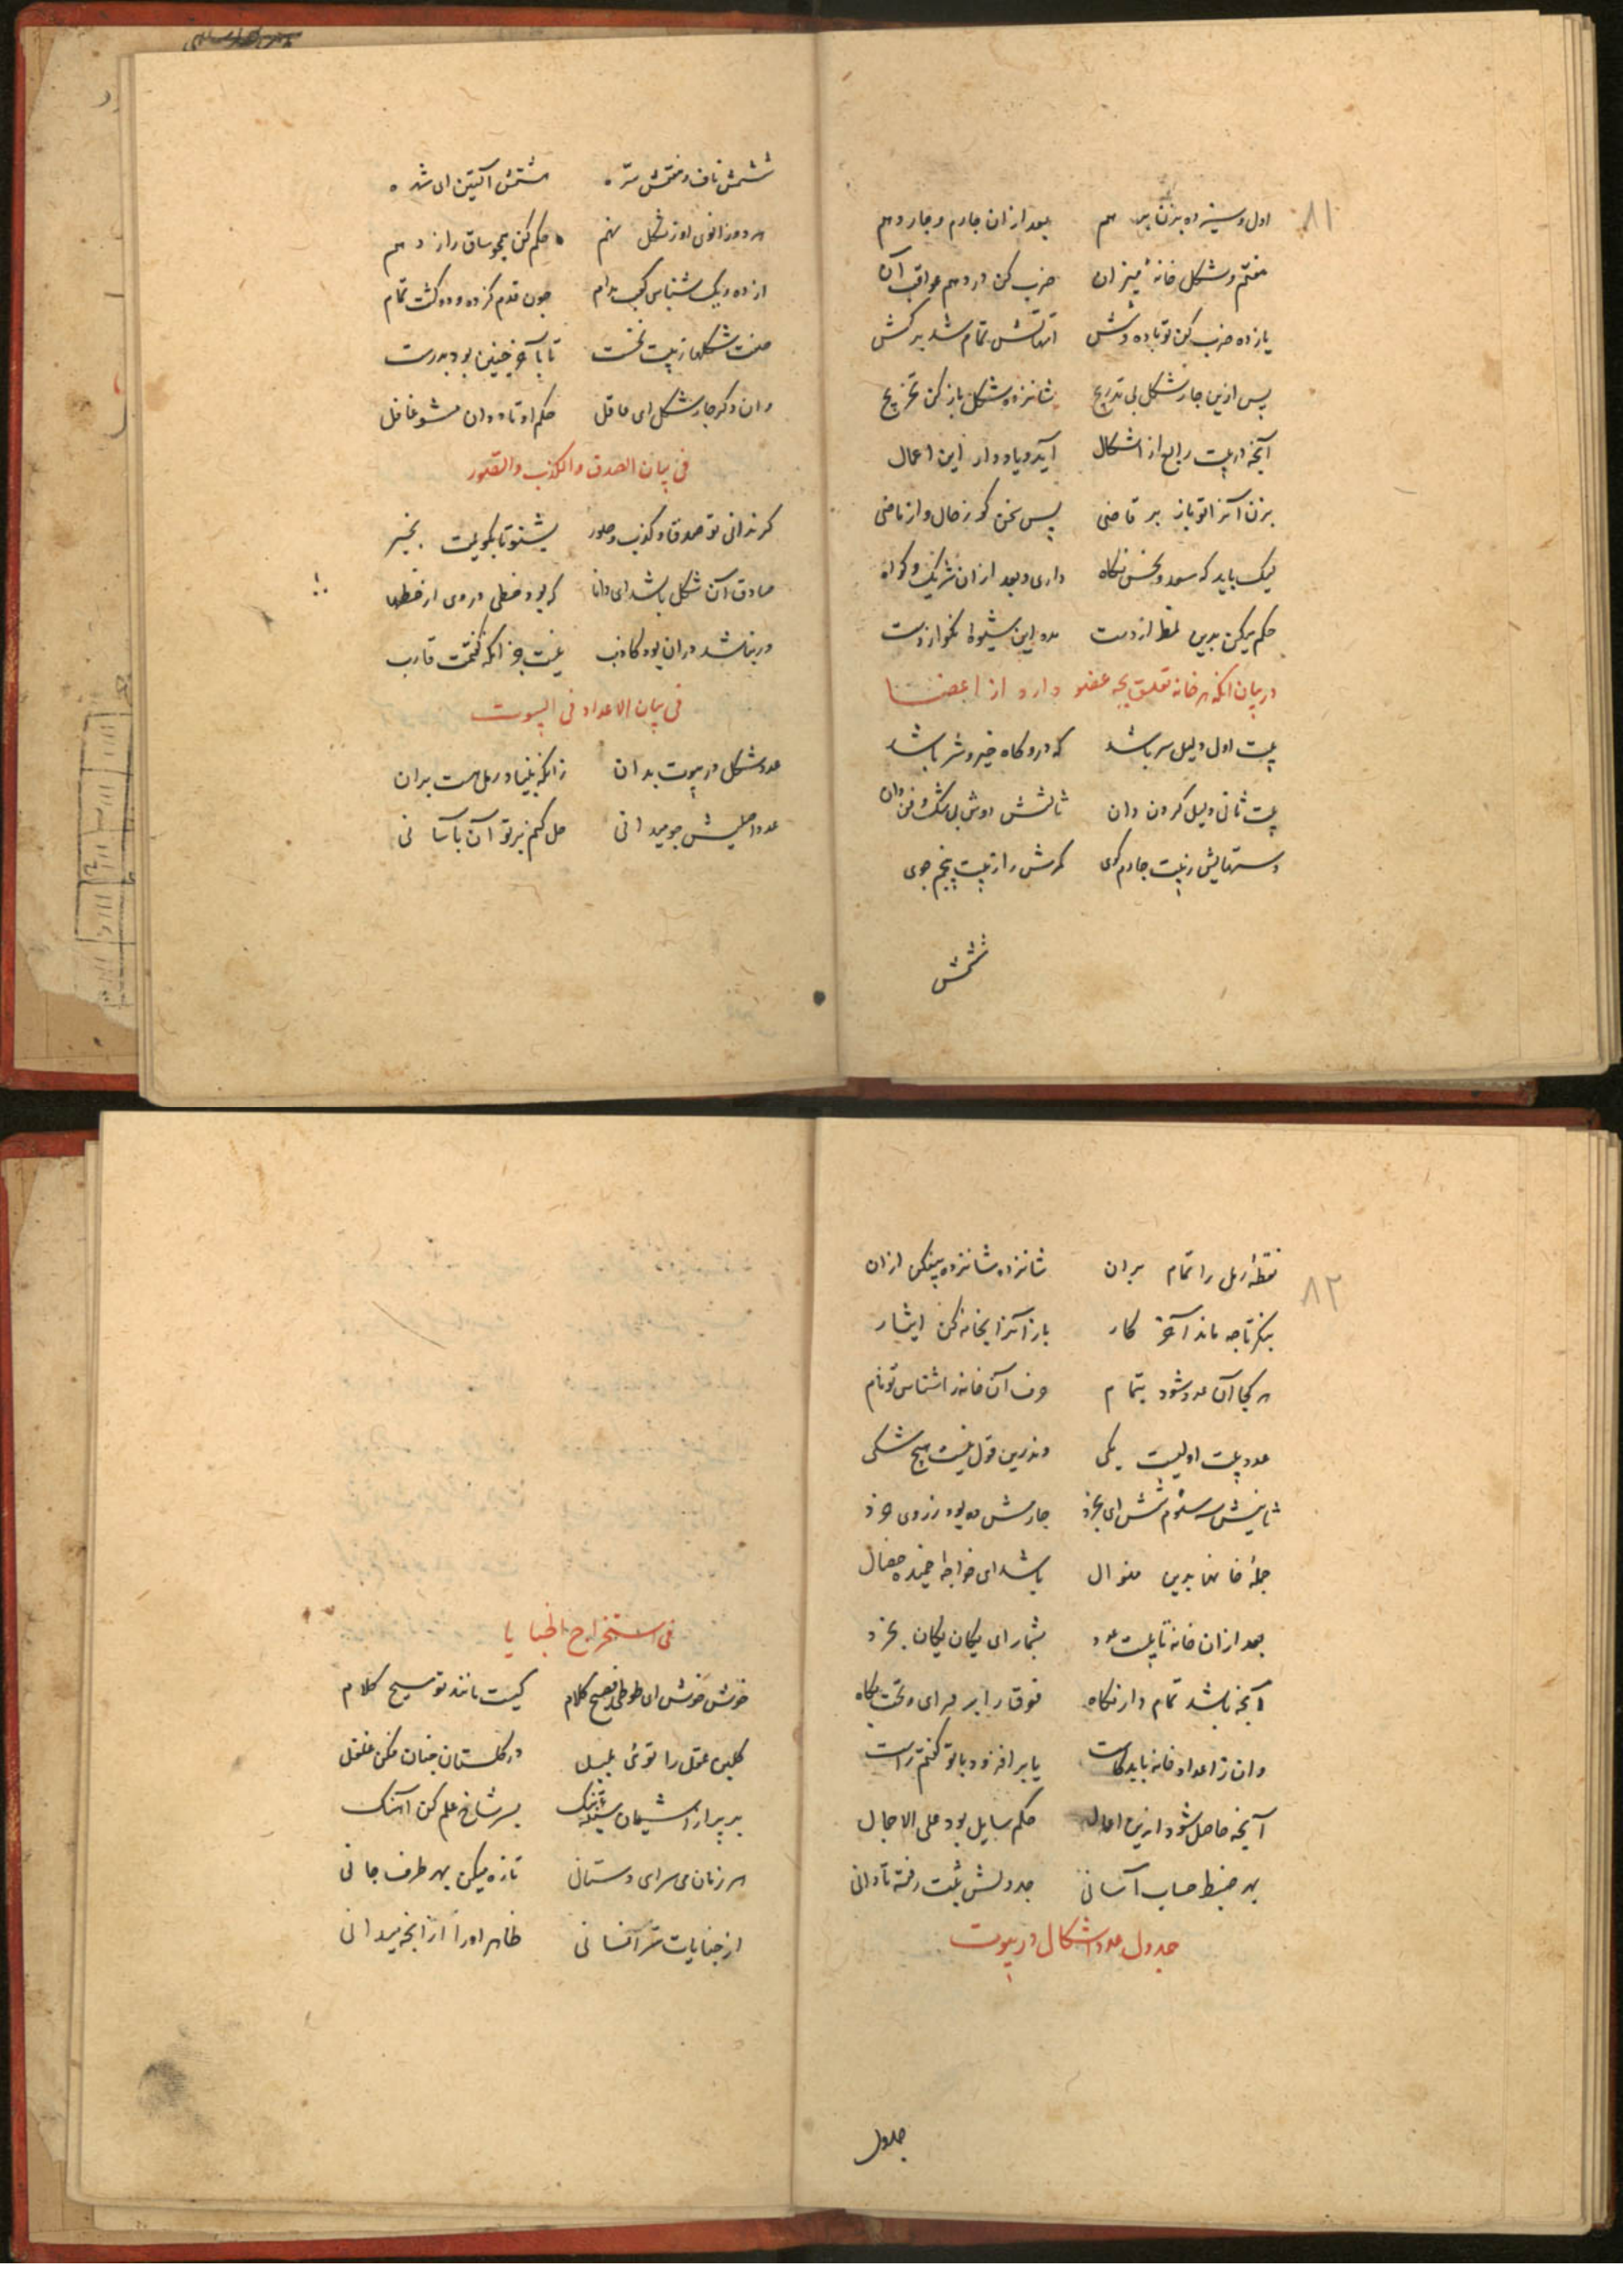 ۸۱
اول و سیزده بزن بر هم بعد ازان چارم و چار دهم
هفتم و شکل خانهٔ میزان ضرب کن در دهم عواقب آن
یازده ضرب کن تو باده و شش امهاتش تمام شد برکش
پس ازین چار شکل بی تدریج شانزده شکل باز کن تخریج
آنچه از بیت رابع از اشکال آید و یاد دار این اعمال
بزن آنرا تو باز بر قاضی پس سخن گو ز حال و از ماضی
لیک باید که سعد و نحس نگاه داری و بعد ازان شریک و گواه
حکم میکن بدین نمط از دست مده این شیوهٔ نکو از دست
در بیان انکه هر خانه تعلق بچه عضو دارد از اعضا
بیت اول دلیل سر باشد که درو گاه خیر و شر باشد
بیت ثانی دلیل گردن دان ثالثش دوش بی شک و ظن دان
دستهایش ز بیت چارم گوی کمرش را ز بیت پنجم جوی
ششمش
ششمش ناف و هفتمش سره هشتمش آلتین ای شده
هر دو زانوی او ز شکل نهم حکم کن همچو ساق را ز دهم
از ده و یک شناس کعب مدام چون قدم کز ده و دو گشت تمام
هفت شکلها ز بیت نخست تا بآخر چنین بود بدرست
وان دگر چار شکل ای عاقل حکم اوتاد دان مشو غافل
فی بیان الصدق والکذب والقصور
گر ندانی تو صدق و کذب و صور بشنو تا بگویمت بخیر
صادق آن شکل باشد ای دانا که بود خطی در وی از خطها
ور نباشد دران بود کاذب نیست جز انکه گفتمت قارب
فی بیان الاعداد فی البیوت
عدد شکل در بیوت بدان زانکه بنیاد رمل هست بران
عدد اصلیش چو میدانی حل کنم بر تو آن بآسانی
۸۲
نقطهٔ رمل را تمام بران شانزده شانزده بیفکن ازان
بنگر تا چه ماند آخر کار باز آنرا بخانه کن ایثار
هر کجا آن عدد شود بتمام حرف آن خانه را شناس تو نام
عدد بیت اولیست یکی وندرین قول نیست هیچ شکی
ثانیش سه سئوم شش ای بخرد چارمش ده بود ز روی خرد
جملهٔ خانها بدین منوال باشد ای خواجهٔ خمیده خصال
بعد ازان خانه تا بیست عدد بشمار ای یگان یگان بخرد
آنچه باشد تمام دار نگاه فوق را بر فزای و تحت بکاه
وان ز اعداد خانه باید کاست یا بر افزود با تو گفتم راست
آنچه حاصل شود ازین اعمال حکم سایل بود علی الاجمال
بهر ضبط حساب آسانی جدولش ثبت رفته تا دانی
جدول عدد اشکال در بیوت
جدول
فی استخراج الخبایا
خوش خوش ای طوطی فصیح کلام کیست مانند تو مسیح کلام
گلبن عقل را توئی بلبل در گلستان جنان مکن غلغل
بر پر از آشیان سینه تنگ بسر شاخ علم کن آهنگ
هر زمان می سرای دستانی تازه میکن بهر طرف جانی
از خبایات سر آفسانی ظاهر اورا از انچه میدانی